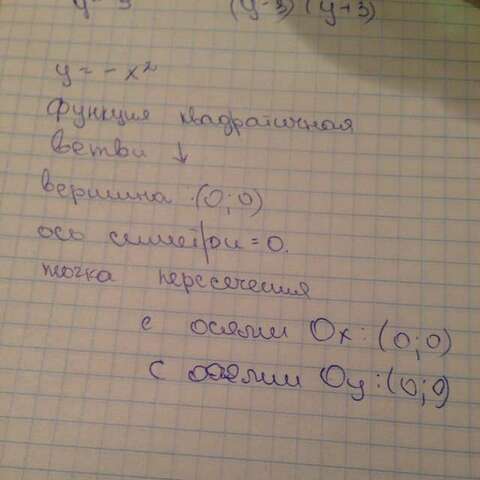 (y-3) (y+3)
y = - x²
функция квадратичная
ветви ↓
вершина : (0;0)
ось симетрии = 0.
точка пересечения
с осями Ox : (0;0)
с осями Oy : (0;0)